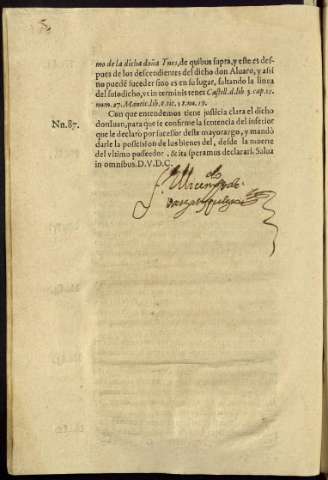 mo de la dicha doña Ines, de quibus supra, y este es des-
pues de los descendientes del dicho don Aluaro, y assi
no puede suceder sino es en su lugar, faltando la linea
del susodicho, vt in terminis tenet Castill. d. lib. 5. cap. 11.
num. 27. Mantic. lib. 8. tit. 18. nu. 19.
Nu. 87.
Con que entendemos tiene justicia clara el dicho
don Iuan, para que se confirme la sentencia del inferior
que le declarò por sucessor deste mayorazgo, y mandò
darle la possession de los bienes del, desde la muerte
del vltimo posseedor. & ita speramus declarari. Salua
in omnibus. D. V. D. C.